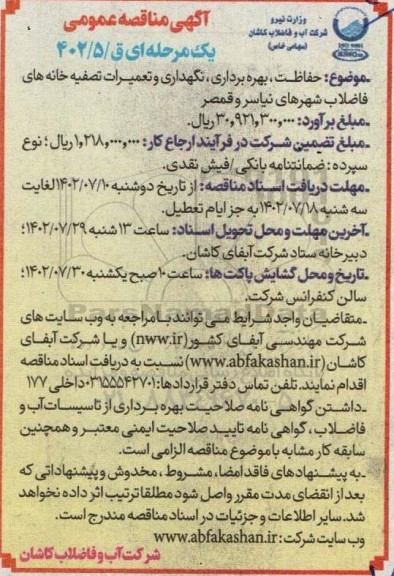 وزارت نیرو
شرکت آب و فاضلاب کاشان
(سهامی خاص)
آگهی مناقصه عمومی
یک مرحله‌ای ق/۴۰۲/۵
ـ موضوع: حفاظت، بهره برداری، نگهداری و تعمیرات تصفیه خانه های
فاضلاب شهرهای نیاسر و قمصر
ـ مبلغ برآورد: ۳۰,۹۲۱,۳۰۰,۰۰۰ ریال.
ـ مبلغ تضمین شرکت در فرآیند ارجاع کار: ۱,۲۱۸,۰۰۰,۰۰۰ ریال؛ نوع
سپرده: ضمانتنامه بانکی/فیش نقدی.
ـ مهلت دریافت اسناد مناقصه: از تاریخ دوشنبه ۱۴۰۲/۰۷/۱۰ لغایت
سه شنبه ۱۴۰۲/۰۷/۱۸ به جز ایام تعطیل.
ـ آخرین مهلت و محل تحویل اسناد: ساعت ۱۳ شنبه ۱۴۰۲/۰۷/۲۹؛
دبیرخانه ستاد شرکت آبفای کاشان.
ـ تاریخ و محل گشایش پاکت ها: ساعت ۱۰ صبح یکشنبه ۱۴۰۲/۰۷/۳۰؛
سالن کنفرانس شرکت.
ـ متقاضیان واجد شرایط می توانند با مراجعه به وب سایت های
شرکت مهندسی آبفای کشور (nww.ir) و یا شرکت آبفای
کاشان (www.abfakashan.ir) نسبت به دریافت اسناد مناقصه
اقدام نمایند. تلفن تماس دفتر قراردادها: ۰۳۱۵۵۵۴۲۷۰۱ داخلی ۱۷۷
ـ داشتن گواهی نامه صلاحیت بهره برداری از تاسیسات آب و
فاضلاب، گواهی نامه تایید صلاحیت ایمنی معتبر و همچنین
سابقه کار مشابه با موضوع مناقصه الزامی است.
ـ به پیشنهادهای فاقد امضا، مشروط، مخدوش و پیشنهاداتی که
بعد از انقضای مدت مقرر واصل شود مطلقا ترتیب اثر داده نخواهد
شد. سایر اطلاعات و جزئیات در اسناد مناقصه مندرج است.
وب سایت شرکت: www.abfakashan.ir
شرکت آب و فاضلاب کاشان